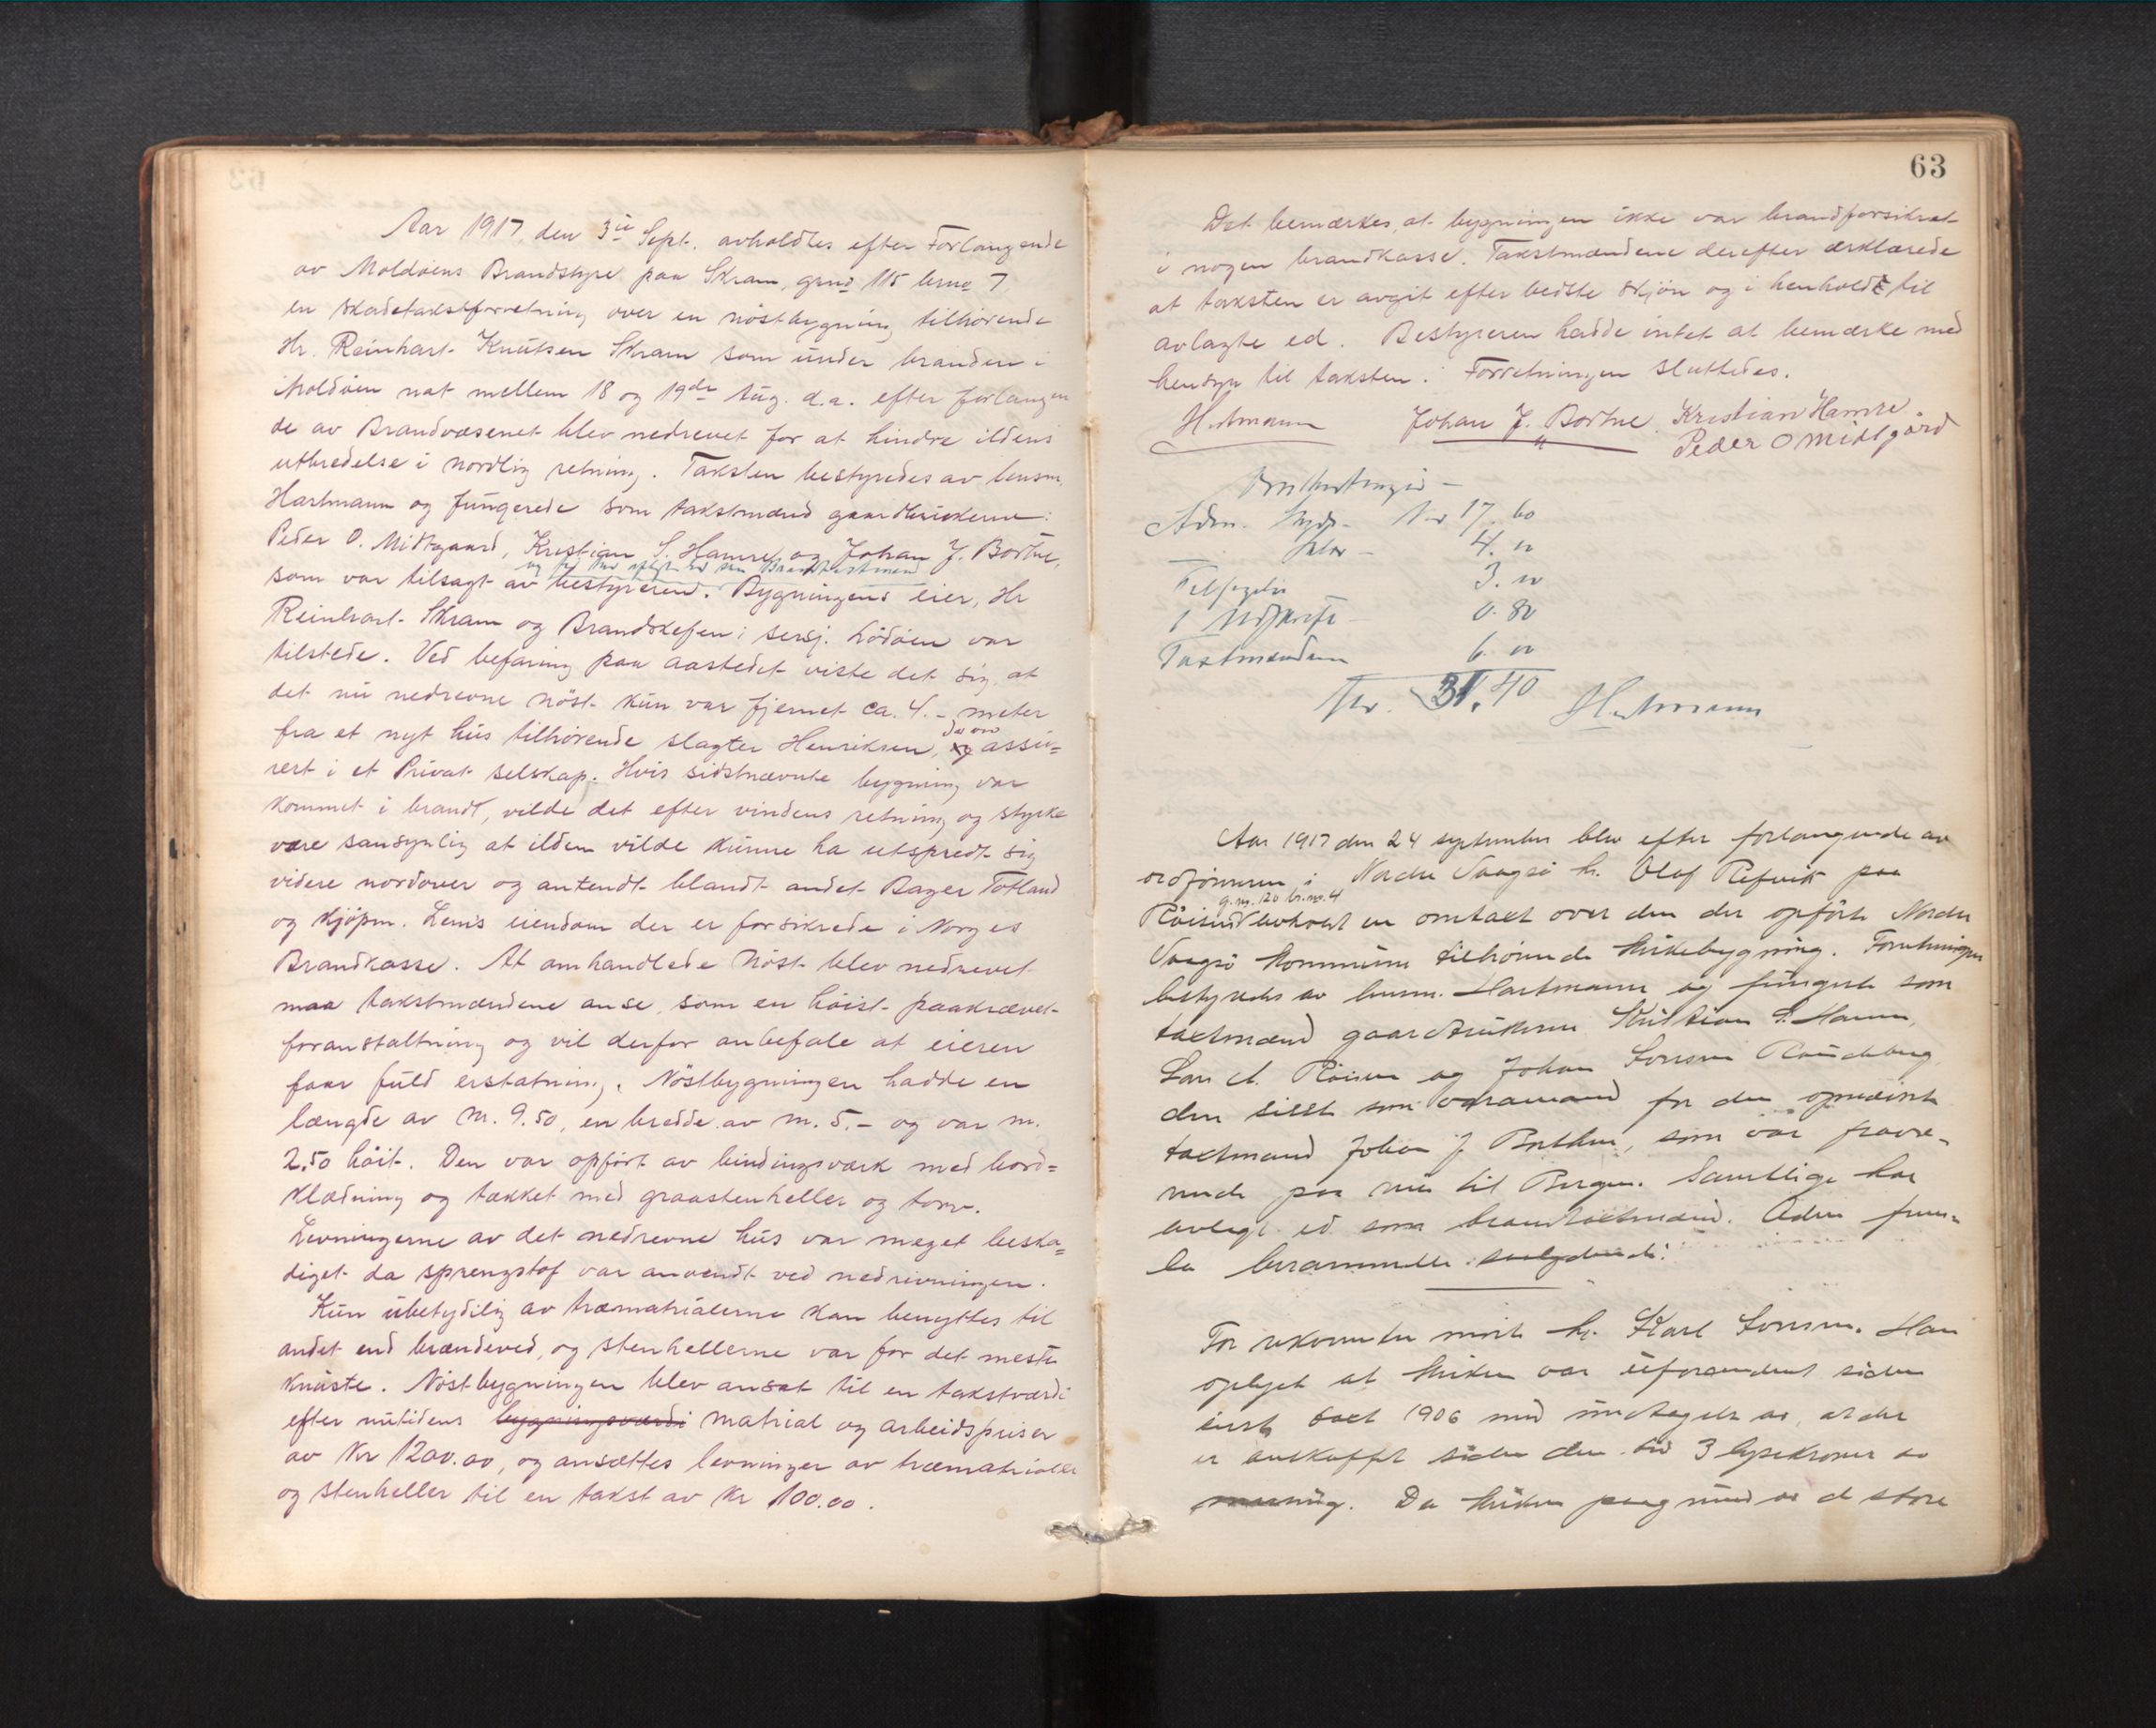 Aar 1917, den 3ie Sept. avholdtes efter Forlangende
av Moldøens Brandstyre paa Skram, grno 115 brno 7,
en skadetakstforretning over en nöstbygning tilhörende
Hr. Reinhart Knutsen Skram som under branden i
Moldöen nat mellem 18 og 19de Aug. d.a. efter forlangen
de av Brandvæsenet blev nedrevet for at hindre ildens
utbredelse i nordlig retning. Taksten bestyredes av lensm.
Hartmann og fungerede som takstmænd gaardbrukerne:
Peder O. Midtgaard, Kristian S. Hamre, og Johan J. Bortne,
som var tilsagt av bestyreren. Bygningens eier, Hr
Reinhart Skram og Brandskefen; sersj. Lödöen var
tilstede. Ved befaring paa aastedet viste det sig at
det nu nedrevne nöst kun var fjernet ca. 4.- meter
fra et nyt hus tilhörende slagter Henriksen, og assu=
rert i et Privat selskap. Hvis sidstnævnte bygning var
kommet i brand, vilde det efter vindens retning og styrke
være sansynlig at ilden vilde kunne ha utspredt sig
videre nordover og antendt blandt andet Bager Totland
og kjöpm. Lems eiendom der er forsikrede i Norges
Brandkasse. At omhandlede Nöst blev nedrevet
maa takstmændene anse, som en höist paakrævet
foranstaltning og vil derfor anbefale at eieren
faar fuld erstatning. Nöstbygningen hadde en
længde av m. 9.50, en bredde av m. 5.- og var m.
2.50 höit. Den var opfört av bindingsværk med bord=
klædning og tækket med graastenheller og torv.
Levningerne av det nedrevne hus var meget beska=
diget da sprengstof var anvendt ved nedrivningen.
Kun ubetydelig av træmatrialerne kan benyttes til
andet end brændeved, og stenhellerne var for det meste
knuste. Nöstbygningen blev ansat til en takstværdi
efter nutidens bygningsværdi matrial og arbeidspriser
av Kr 1200.00, og ansættes levninger av træmatrialer
og stenheller til en takst av Kr 100.00.
63
Det bemærkes, at bygningen ikke var brandforsikret
i nogen brandkasse. Takstmændene derefter erklærede
at taksten er avgit efter bedste skjön og i henhold til
avlagte ed. Bestyreren hadde intet at bemærke med
hensyn til taksten. Forretningen sluttedes.
Hartmann Johan J. Bortne. Kristian Hamre.
Peder O Midtgård
Adm. Kr 17.60
4.00
3.00
1 Udskrift 0.80
Taxtmændene 6.00
Kr. 31.40 Hartmann
Aar 1917 den 24 september blev efter forlangende av
ordföreren i Nordre Vaagsö hr. Olaf Refvik paa
g.nr. 20 br.nr. 4
Röisund avholdt en omtaxt over den der opförte Nordre
Vaagsö kommune tilhörende kirkebygning. Forretningen
bestyredes av lensm. Hartmann og fungerte som
taxtmænd gaardbrukerne Kristian S. Hamre,
Lars A. Röisun og Johan Sörensen Raudeberg
den sidste som varamand for den opnævnte
taxtmand Johan J. Borthne, som var fravæ-
rende paa reise til Bergen. Samtlige har
avlagt ed som brandtaxtmænd. Adm. frem-
la berammelse saalydende:
For rekvirenten mötte hr. Karl Sörensen. Han
oplyste at kirken var uforandret siden
sidste taxt 1906 med undtagelse av, at der
er anskaffet siden den tid 3 lysekroner av
messing. Da kirken paa grund av de store